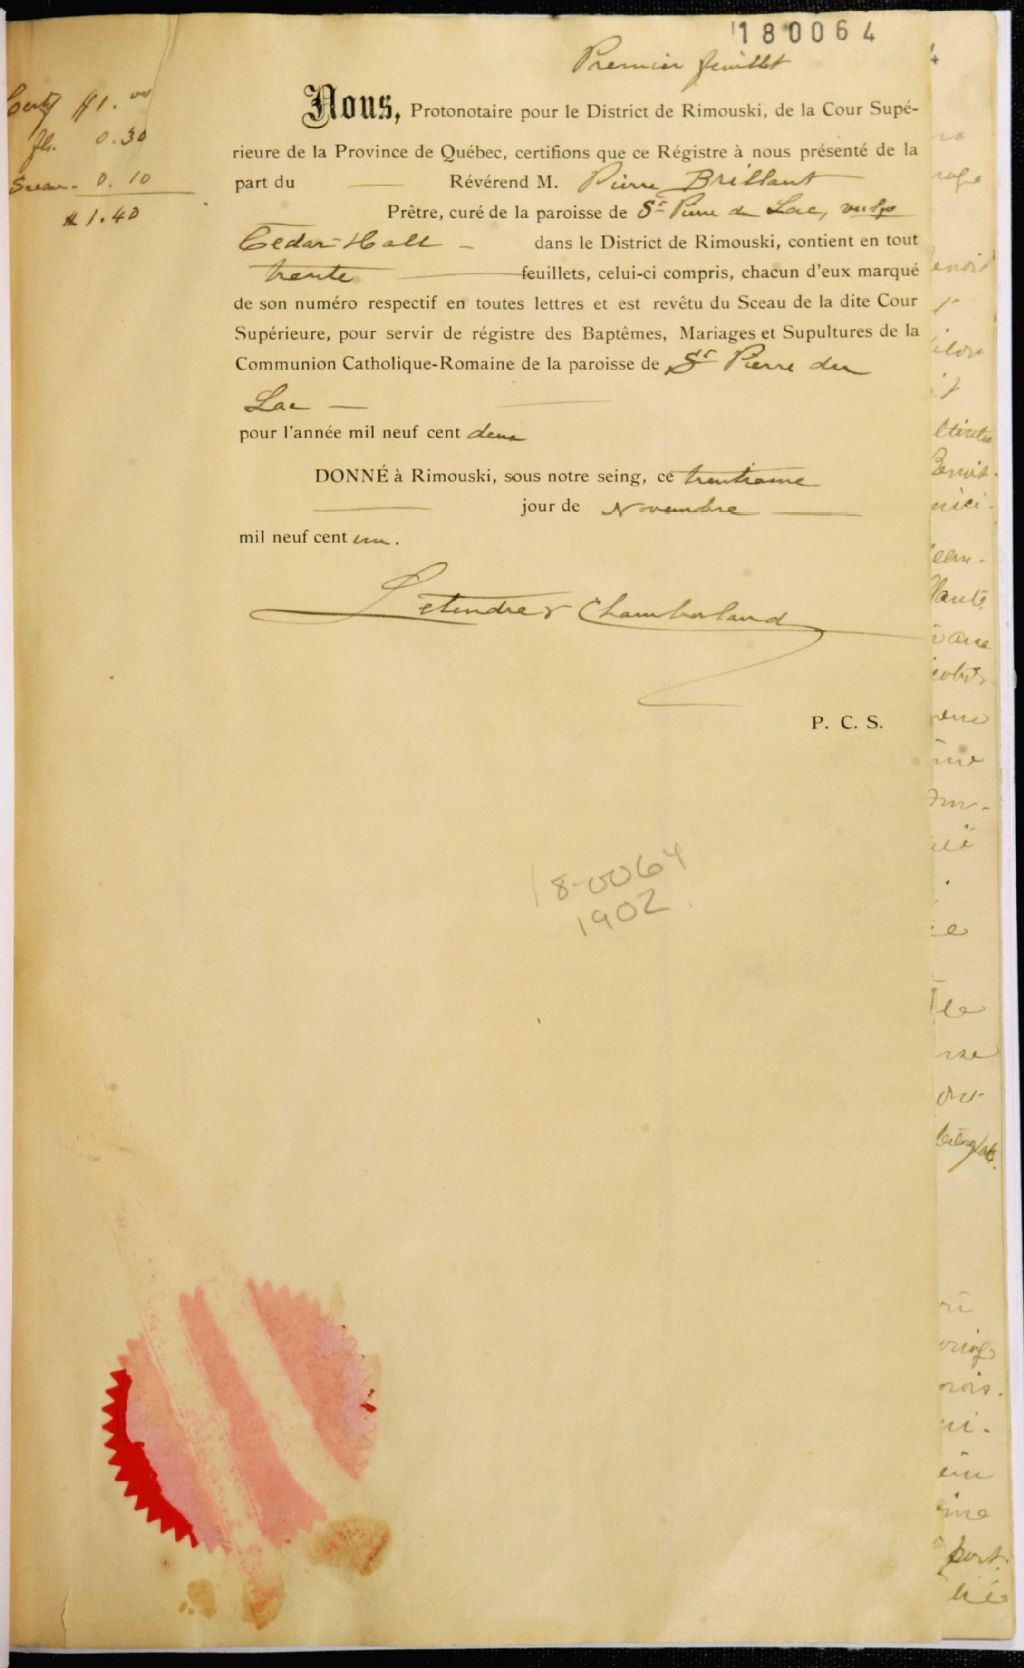 180064
Premier feuillet
Certf $1.00
fls. 0.30
Sceau - 0.10
$1.40
Nous, Protonotaire pour le District de Rimouski, de la Cour Supé-
rieure de la Province de Québec, certifions que ce Régistre à nous présenté de la
part du — Révérend M. Pierre Brillant
Prêtre, curé de la paroisse de St Pierre du Lac, vulgo
Cédar-Hall - dans le District de Rimouski, contient en tout
trente — feuillets, celui-ci compris, chacun d'eux marqué
de son numéro respectif en toutes lettres et est revêtu du Sceau de la dite Cour
Supérieure, pour servir de régistre des Baptêmes, Mariages et Supultures de la
Communion Catholique-Romaine de la paroisse de St Pierre du
Lac —
pour l'année mil neuf cent deux
DONNÉ à Rimouski, sous notre seing, ce trentième
— jour de Novembre —
mil neuf cent un.
Letendre & Chamberland
P. C. S.
180064
1902